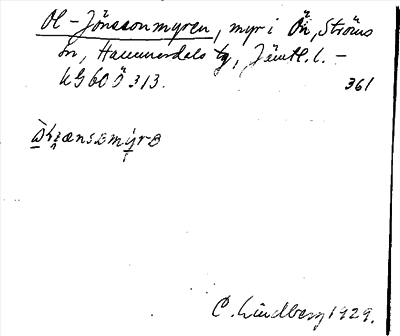 Ol-Jönssonmyren, myr i Ön, Ströms
sn, Hammerdals tg, Jämtl. l. –
UG 60 Ö 313.
361
C. Lindberg 1929.